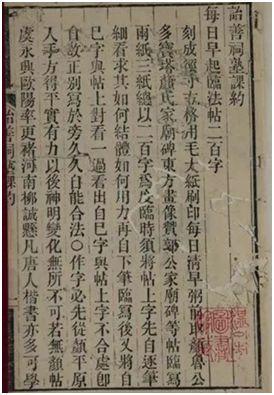 詒善祠塾課約
每日早起臨法帖二百字
刻成徑寸方格用毛太紙刷印每日清早粥前取顏魯公
多寶塔顏氏家廟碑東方畫像贊郭公家廟碑等帖臨
兩紙三紙總以二百字為度臨時須將帖上字先自逐筆
細看求其如何結體如何用力再自下筆臨寫後又將自
己字與帖上對看一過看出自己字與帖上字不合處即
自改正別寫於旁久久自能合法○作字必先從顏平原
入手方得平實有力以後神明變化無所不可若無顏帖
虞永興歐陽率更褚河南柳誠懸凡唐人楷書亦多可學
詒善祠塾課約